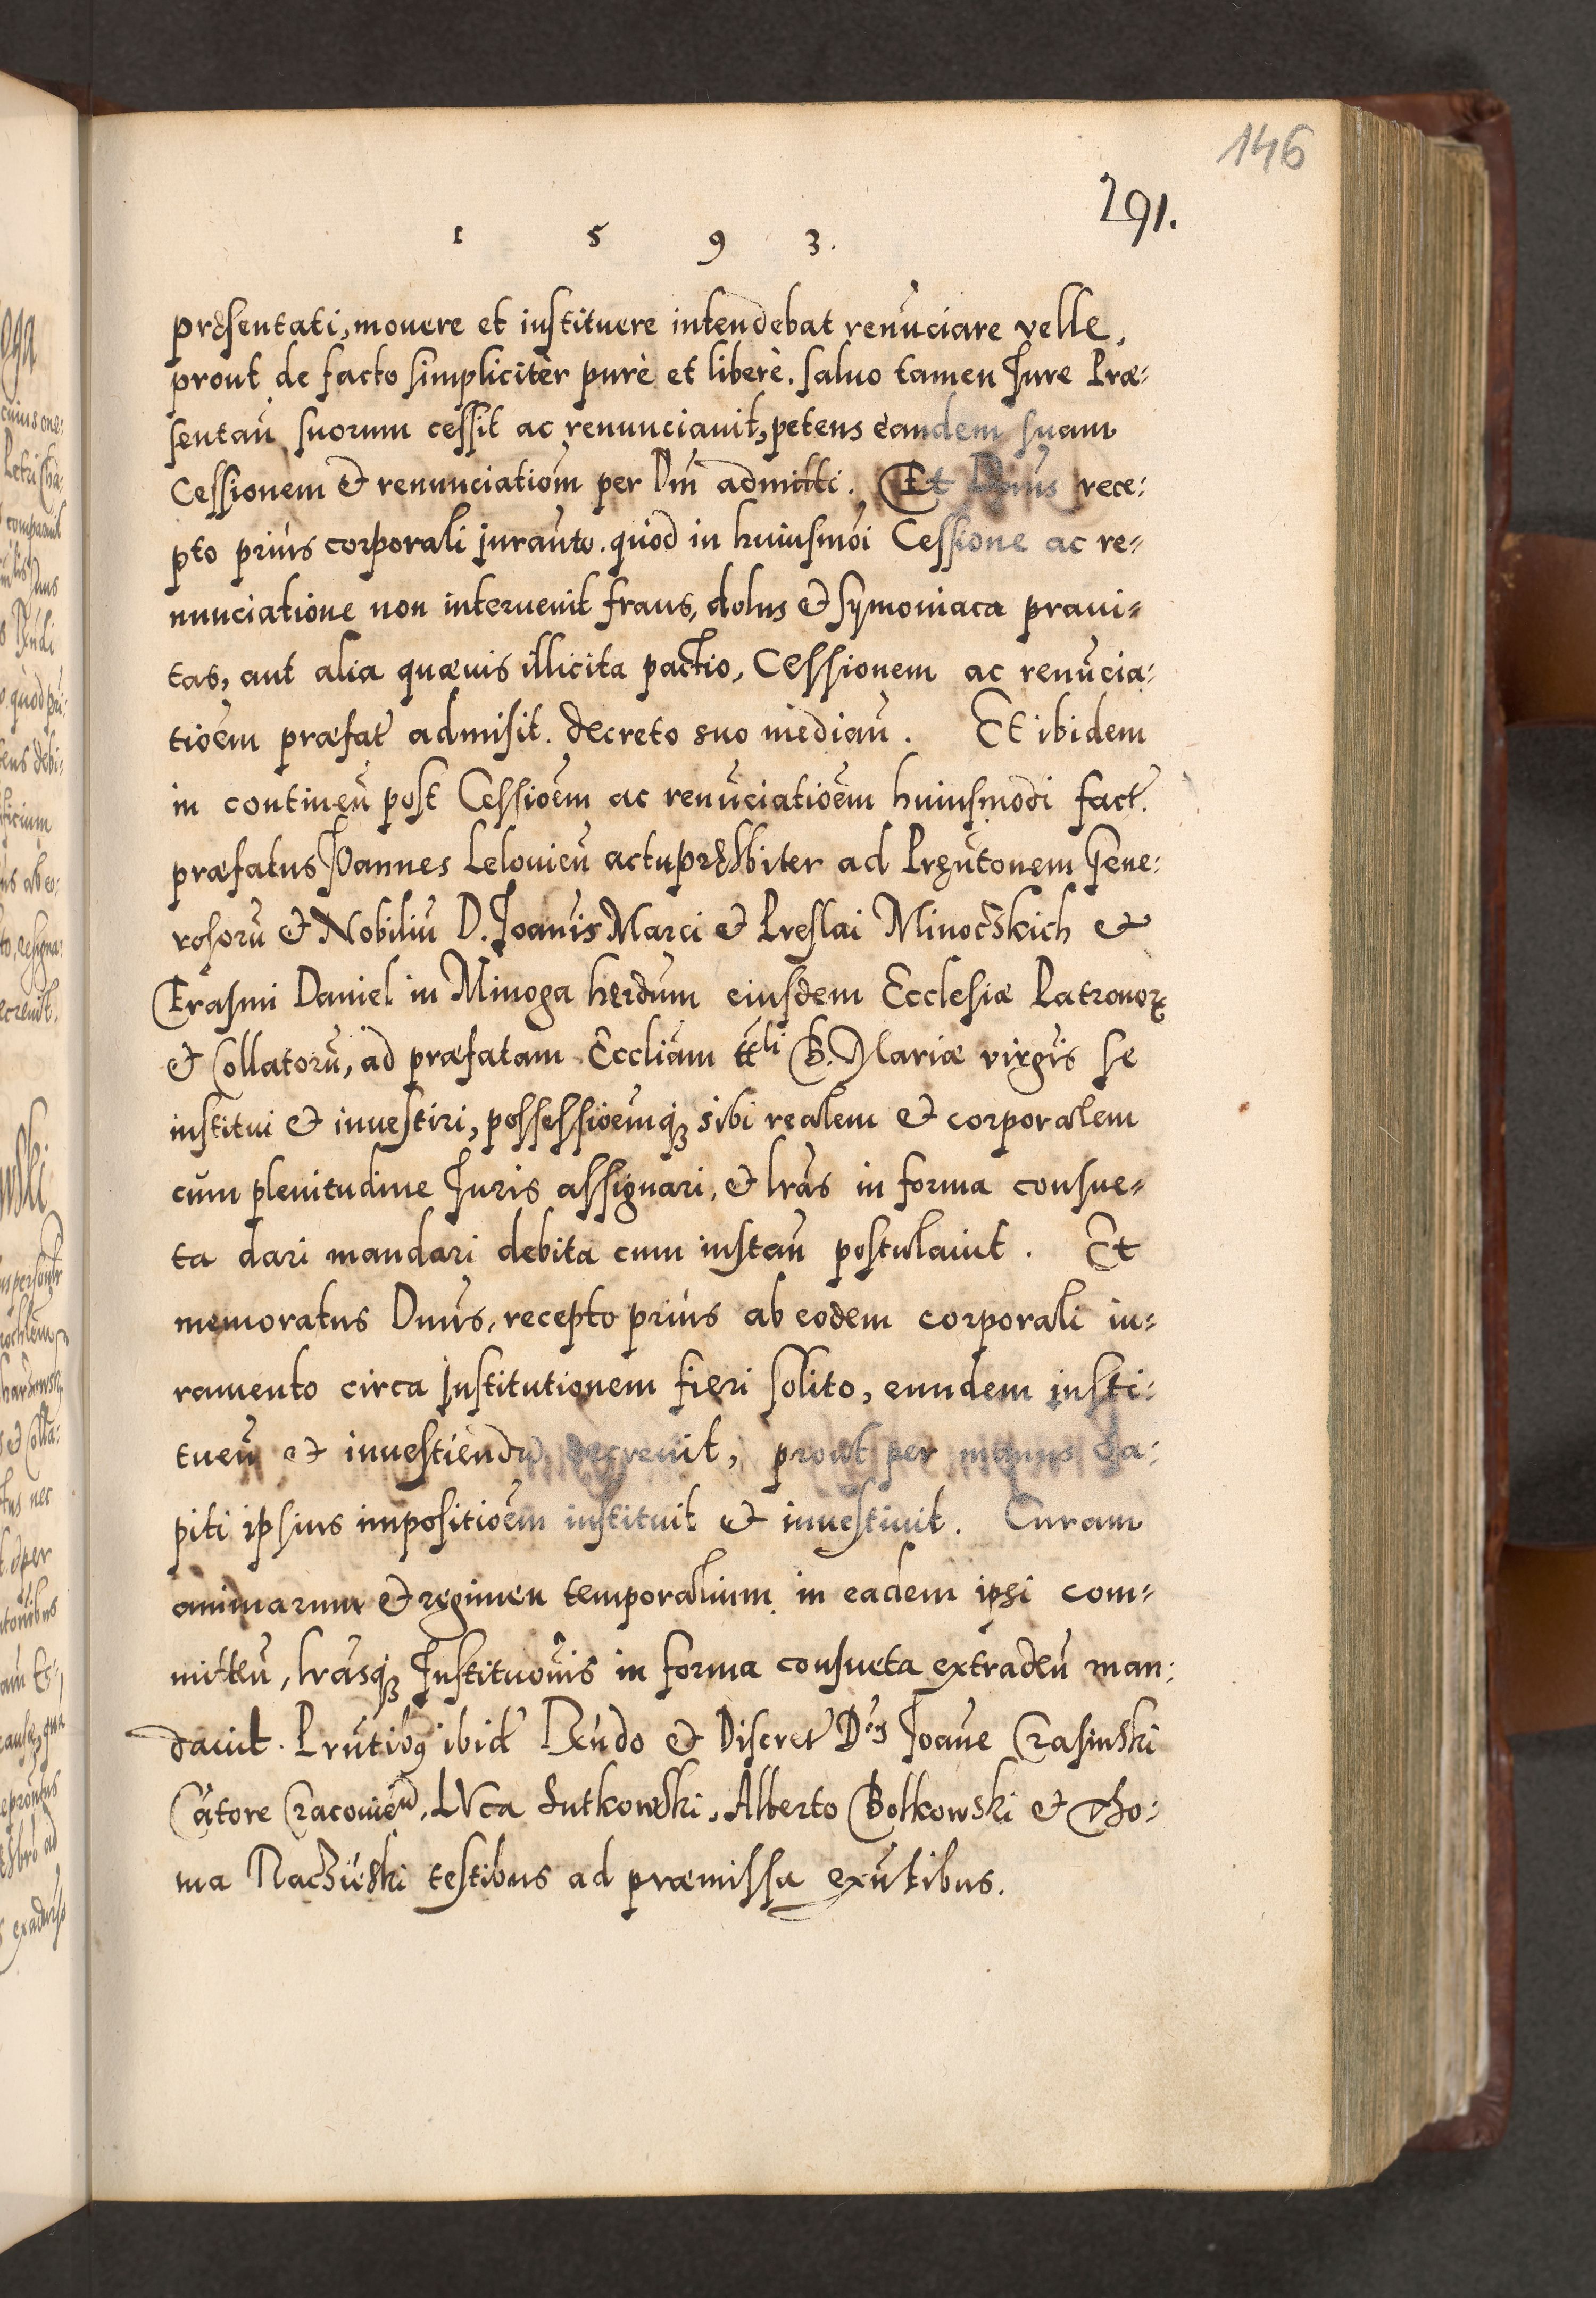 146
291.
1 5 9 3.
præsentati, mouere et instituere intendebat renūciare velle,
prout de facto simplicitèr purè et liberè. saluo tamen Jure Præ-
sentañ suorum cessit ac renunciauit, petens eandem suam
Cessionem & renunciatiom̄ per Dm̄ admitti. Et Dnus rece-
pto priùs corporali jurañto. quod in huiusmoi Cessione ac re-
nunciatione non interuenit fraus, dolus & symoniaca praui-
tas, aut alia quæuis illicita pactio, Cessionem ac renūcia-
tioēm præfat admisit. decreto suo mediañ. Et ibidem
in contineñ post Cessioēm ac renūciatioēm huiusmodi fact.
præfatus Joannes Lelouieñ actu præsbiter ad Pręntōnem Gene-
rosorū & Nobiliū D. Joanīs Marci & Preslai Minoczskich &
Erasmi Daniel in Minoga herdum eiusdem Ecclesiæ Patronoꝝ
& Collatorū, ad præfatam Eccliam ttli B. Mariæ virgīs se
institui & inuestiri, possessioēmqꝫ sibi realem & corporalem
cum plenitudine Juris assignari, & lrās in forma consue-
ta dari mandari debita cum instañ postulauit. Et
memoratus Dnūs, recepto priùs ab eodem corporali iu-
ramento circa Institutionem fieri solito, eundem insti-
tueñ & inuestiendū decreuit, prout per manus Ca-
piti ipsius impositioēm instituit & inuestiuit. Curam
animarum & regimen temporalium in eadem ipsi com-
mitteñ, lrāsqꝫ Instituōnis in forma consueta extradeñ man-
dauit. Prñtibꝯ ibid Rñdo & Discret Dīs Joañe Crasinski
Cātore Cracouień, LVca Lutkowski, Alberto Bolkowski & Tho-
ma testibus ad præmissa exn̄tibus.